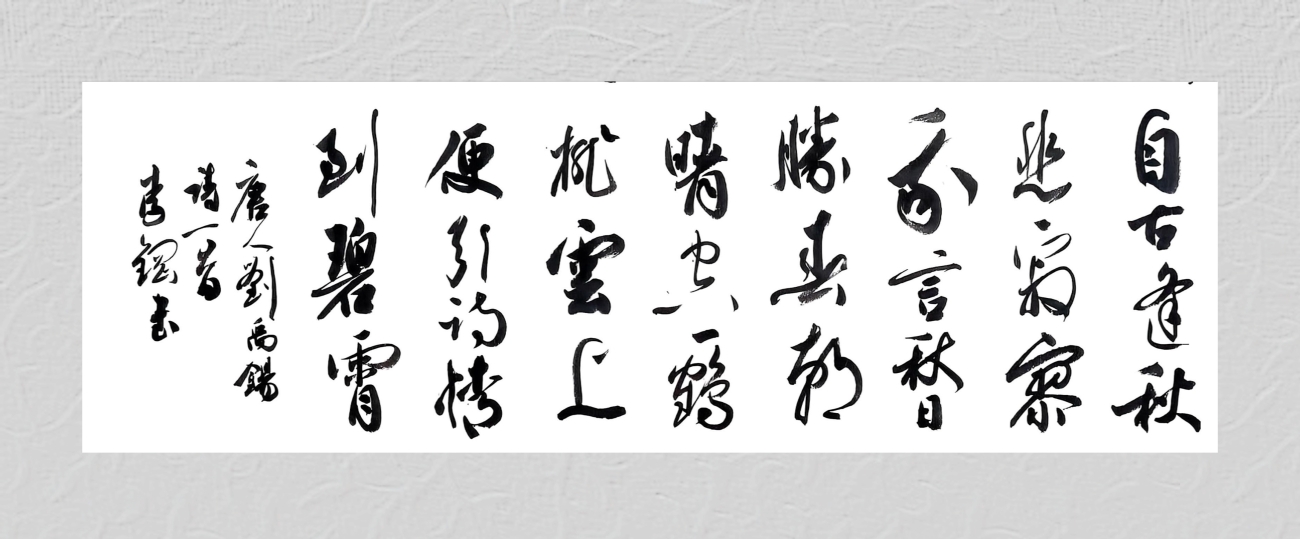 自古逢秋
悲寂寥
我言秋日
勝春朝
晴空一鶴
排雲上
便引詩情
到碧霄
唐人劉禹錫
詩一首
書